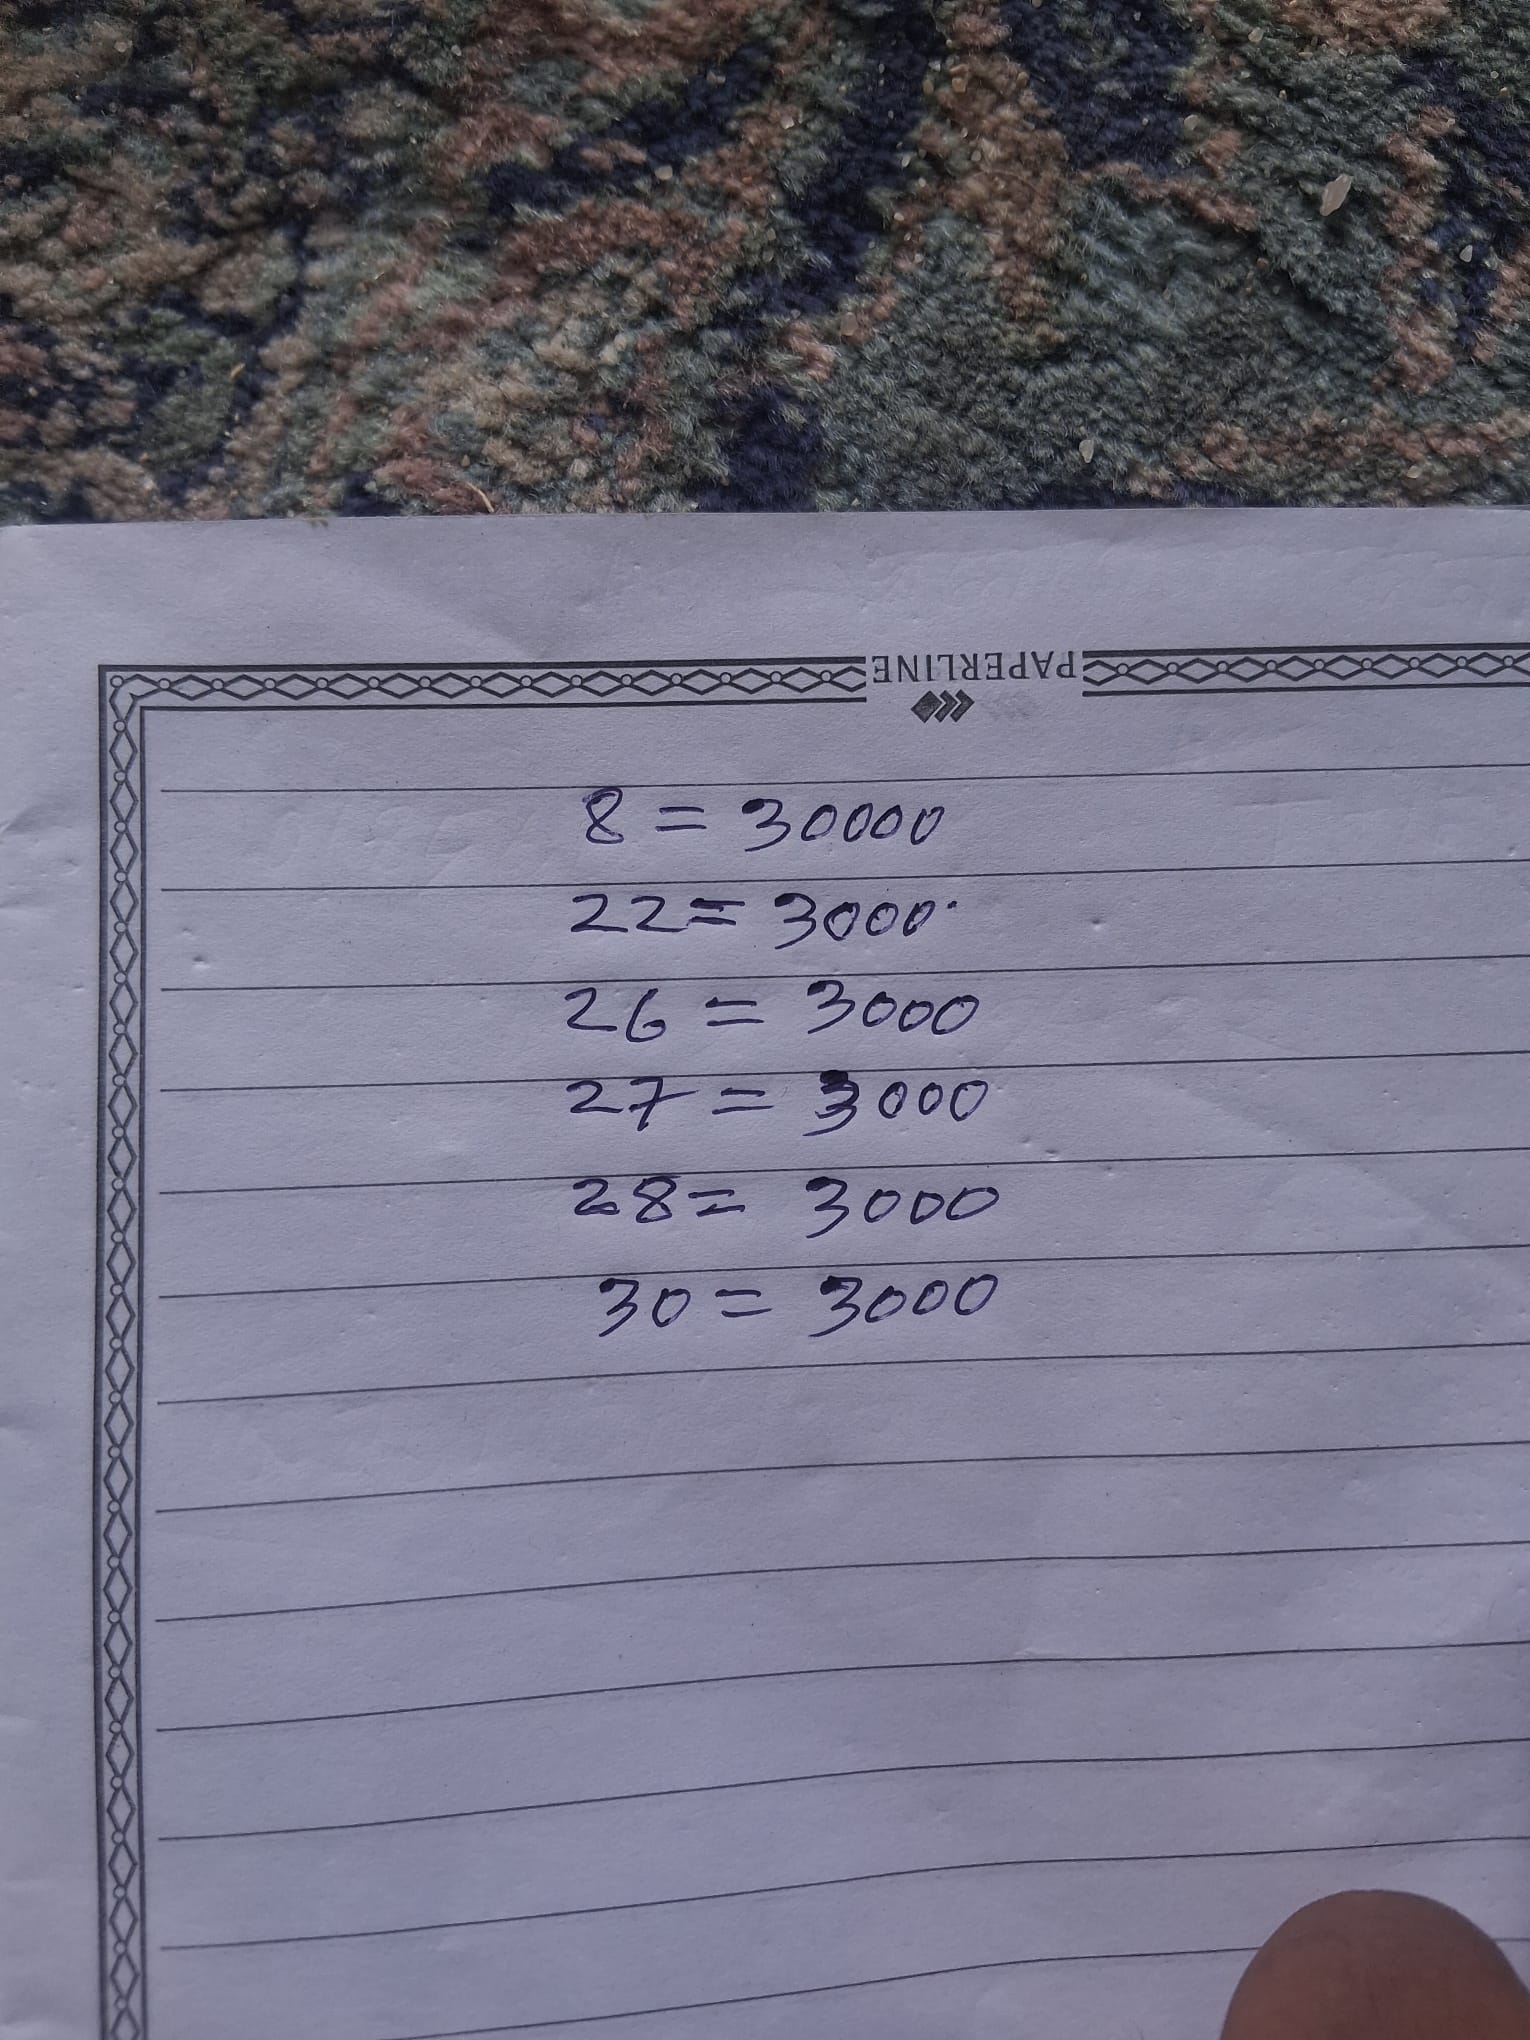 PAPERLINE
8 = 30000
22 = 3000
26 = 3000
27 = 3000
28 = 3000
30 = 3000